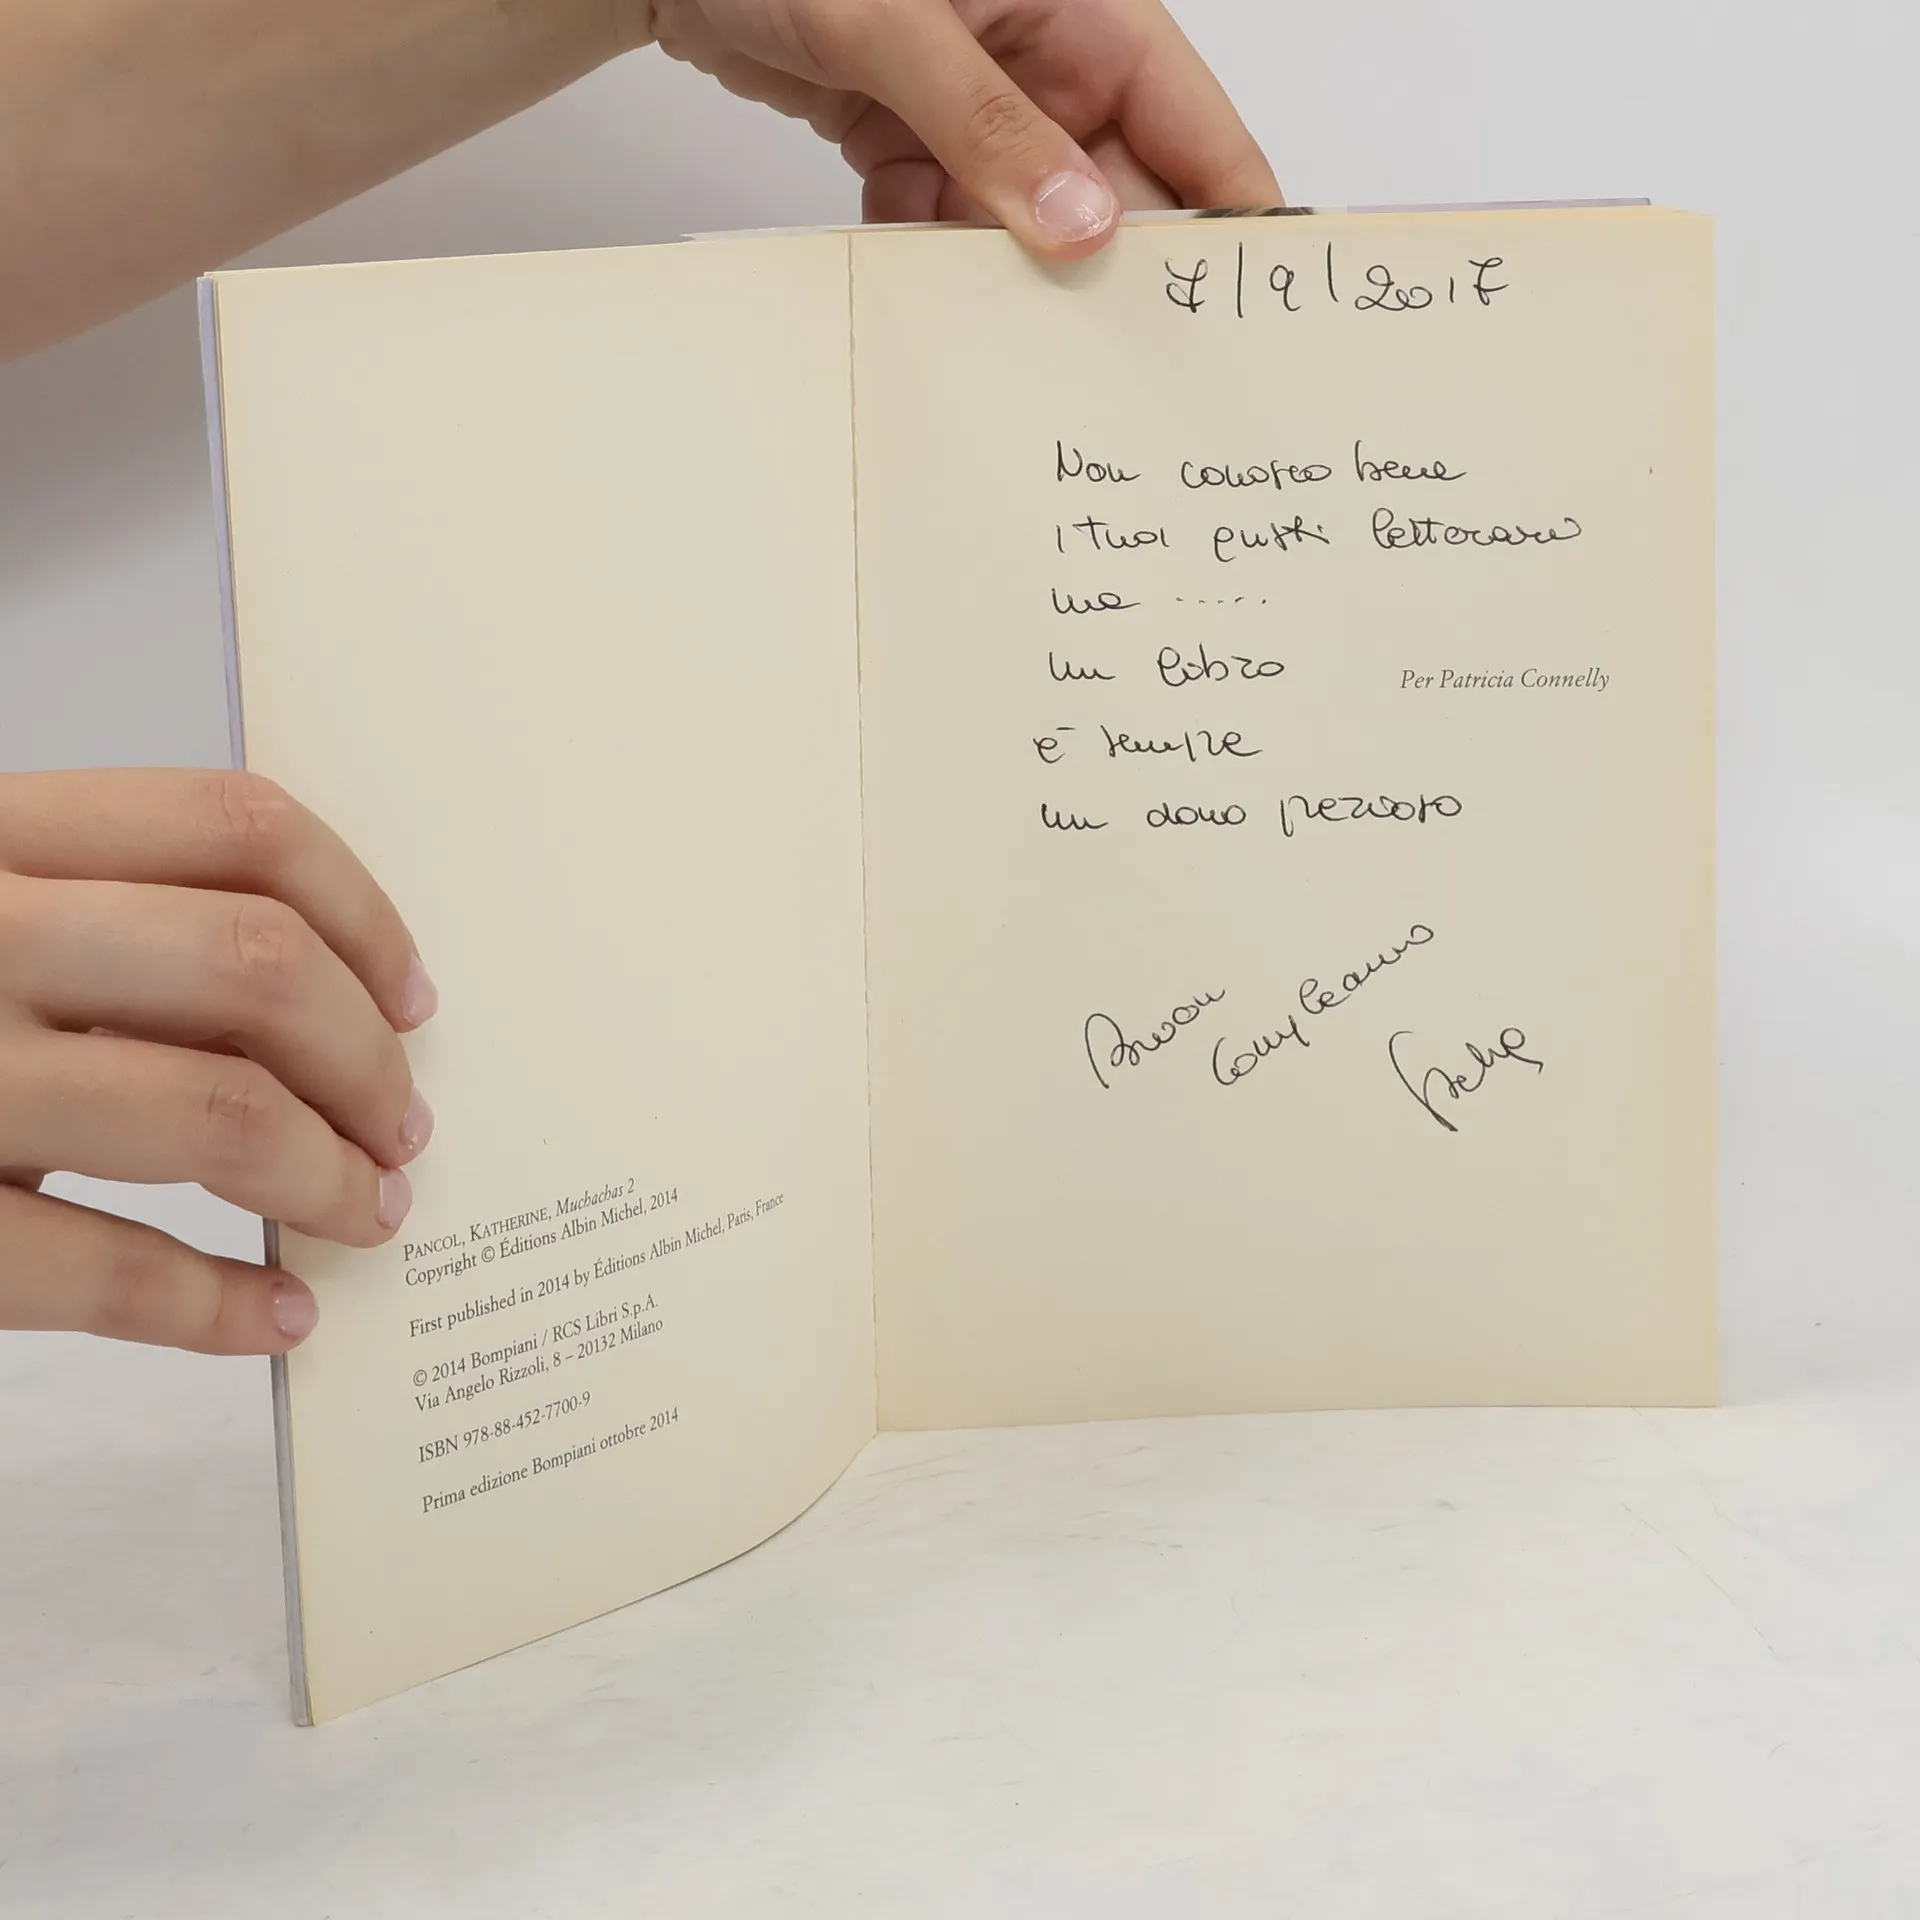 PANCOL, KATHERINE, Muchachas 2
Copyright © Éditions Albin Michel, 2014
First published in 2014 by Éditions Albin Michel, Paris, France
© 2014 Bompiani / RCS Libri S.p.A.
Via Angelo Rizzoli, 8 – 20132 Milano
ISBN 978-88-452-7700-9
Prima edizione Bompiani ottobre 2014
7/9/2017
Non conosco bene
i tuoi gusti letterari
ma .....
un libro
Per Patricia Connelly
è sempre
un dono prezioso
Buon
Compleanno